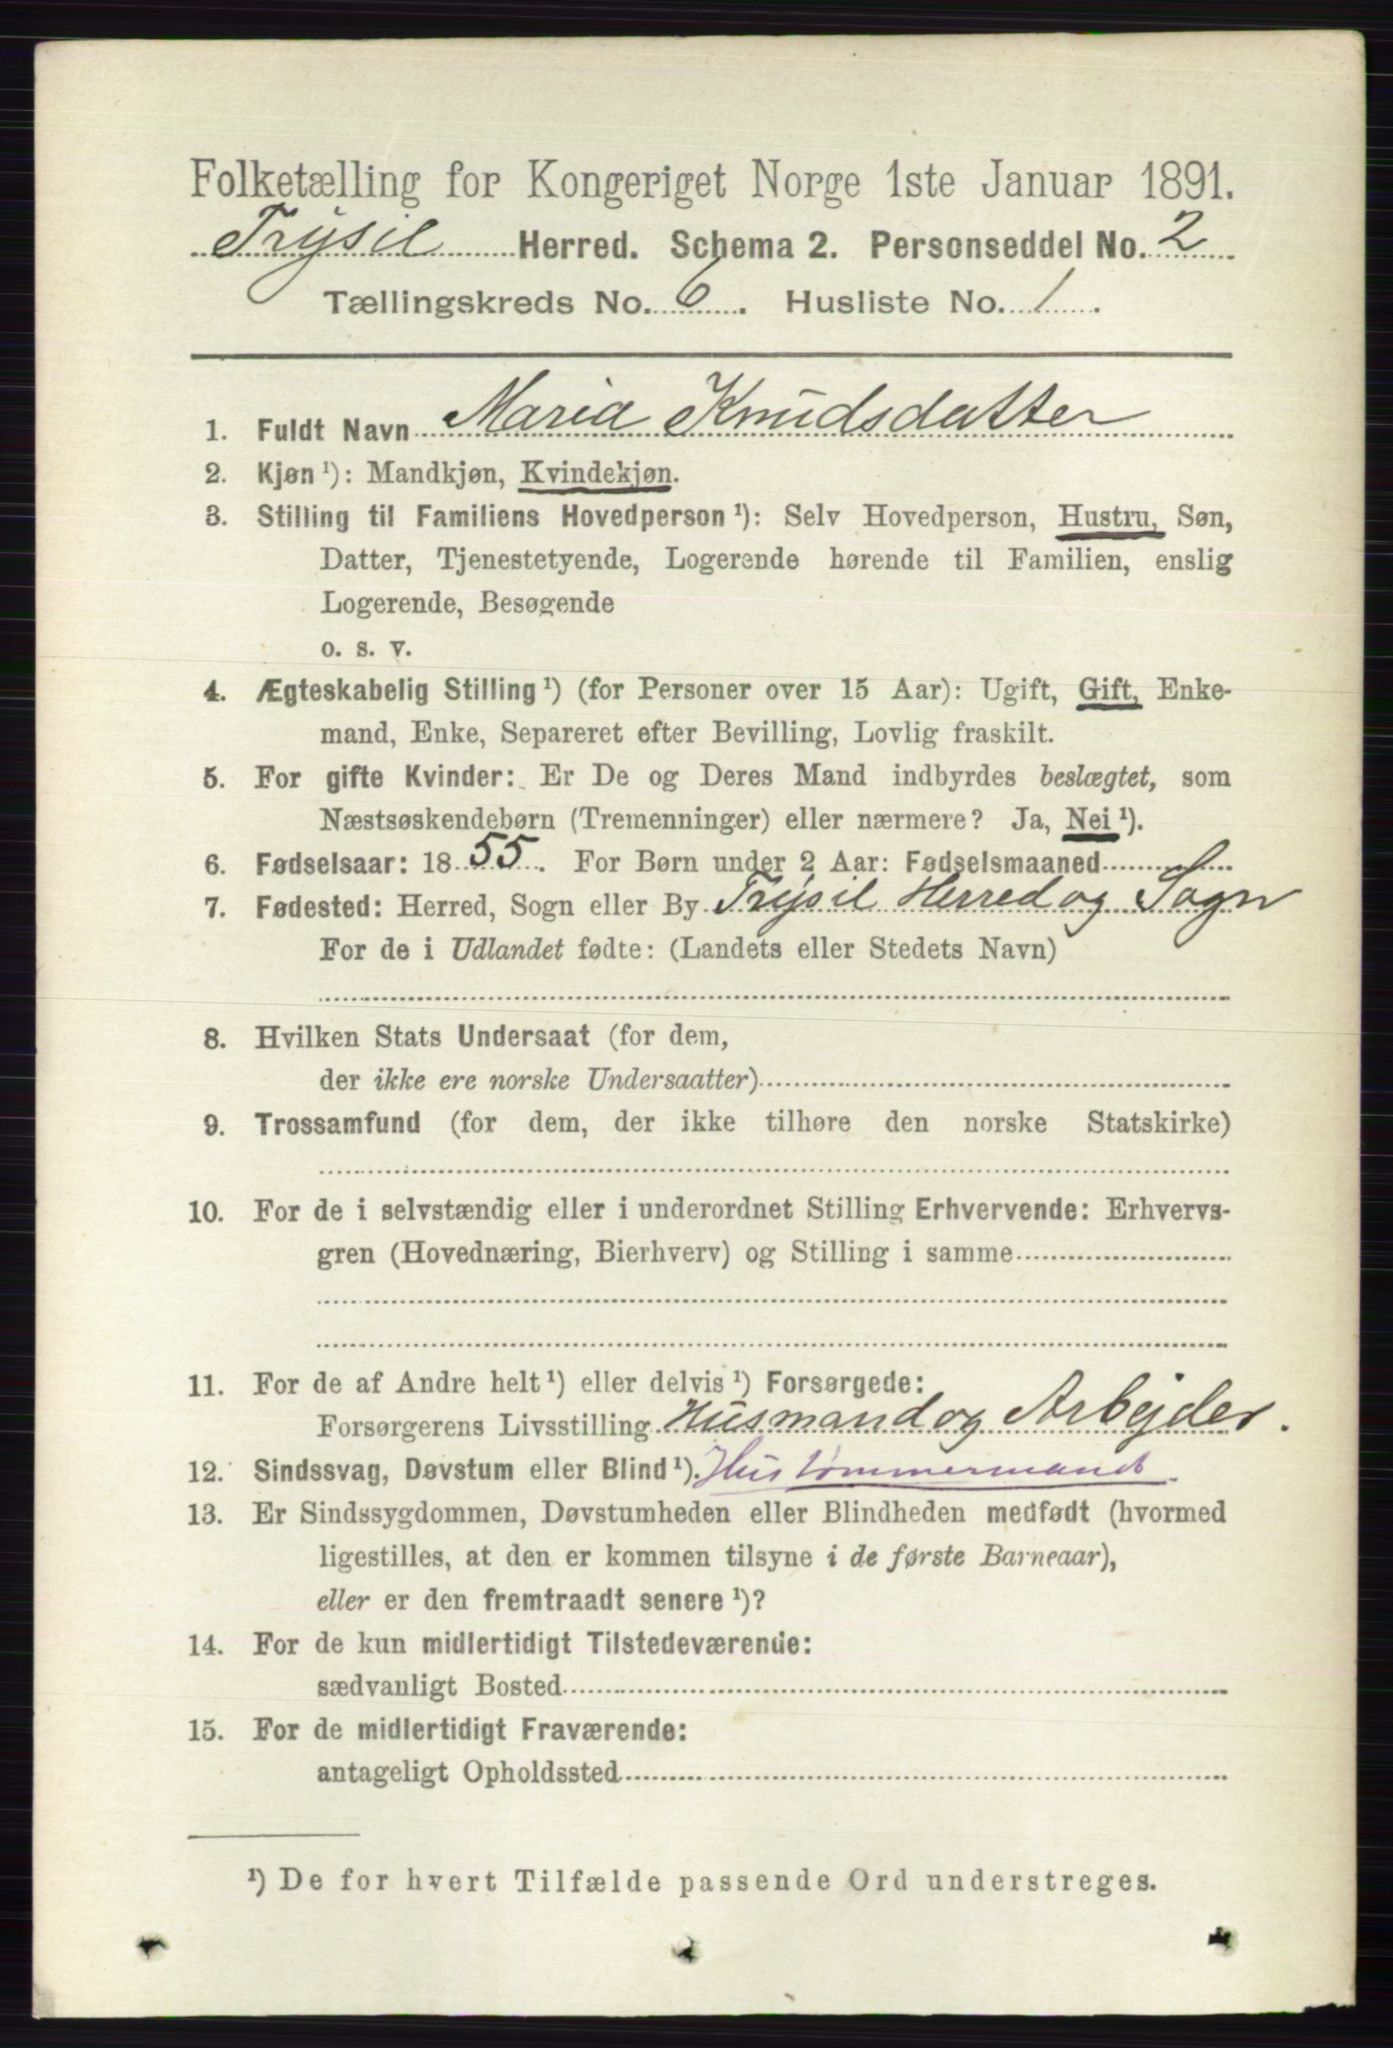 Folketælling for Kongeriget Norge 1ste Januar 1891.
Trysil Herred. Schema 2. Personseddel No. 2
Tællingskreds No. 6. Husliste No. 1.
1. Fuldt Navn Maria Knudsdatter
2. Kjøn ¹): Mandkjøn, Kvindekjøn.
3. Stilling til Familiens Hovedperson ¹): Selv Hovedperson, Hustru, Søn,
Datter, Tjenestetyende, Logerende hørende til Familien, enslig
Logerende, Besøgende
o. s. v.
4. Ægteskabelig Stilling ¹) (for Personer over 15 Aar): Ugift, Gift, Enke-
mand, Enke, Separeret efter Bevilling, Lovlig fraskilt.
5. For gifte Kvinder: Er De og Deres Mand indbyrdes beslægtet, som
Næstsøskendebørn (Tremenninger) eller nærmere? Ja, Nei ¹).
6. Fødselsaar: 1855. For Børn under 2 Aar: Fødselsmaaned
7. Fødested: Herred, Sogn eller By Trysil Herred og Sogn
For de i Udlandet fødte: (Landets eller Stedets Navn)
8. Hvilken Stats Undersaat (for dem,
der ikke ere norske Undersaatter)
9. Trossamfund (for dem, der ikke tilhøre den norske Statskirke)
10. For de i selvstændig eller i underordnet Stilling Erhvervende: Erhvervs-
gren (Hovednæring, Bierhverv) og Stilling i samme
11. For de af Andre helt ¹) eller delvis ¹) Forsørgede:
Forsørgerens Livsstilling Husmand og Arbejder.
12. Sindssvag, Døvstum eller Blind ¹). Hustømmermand.
13. Er Sindssygdommen, Døvstumheden eller Blindheden medfødt (hvormed
ligestilles, at den er kommen tilsyne i de første Barneaar),
eller er den fremtraadt senere ¹)?
14. For de kun midlertidigt Tilstedeværende:
sædvanligt Bosted
15. For de midlertidigt Fraværende:
antageligt Opholdssted
¹) De for hvert Tilfælde passende Ord understreges.